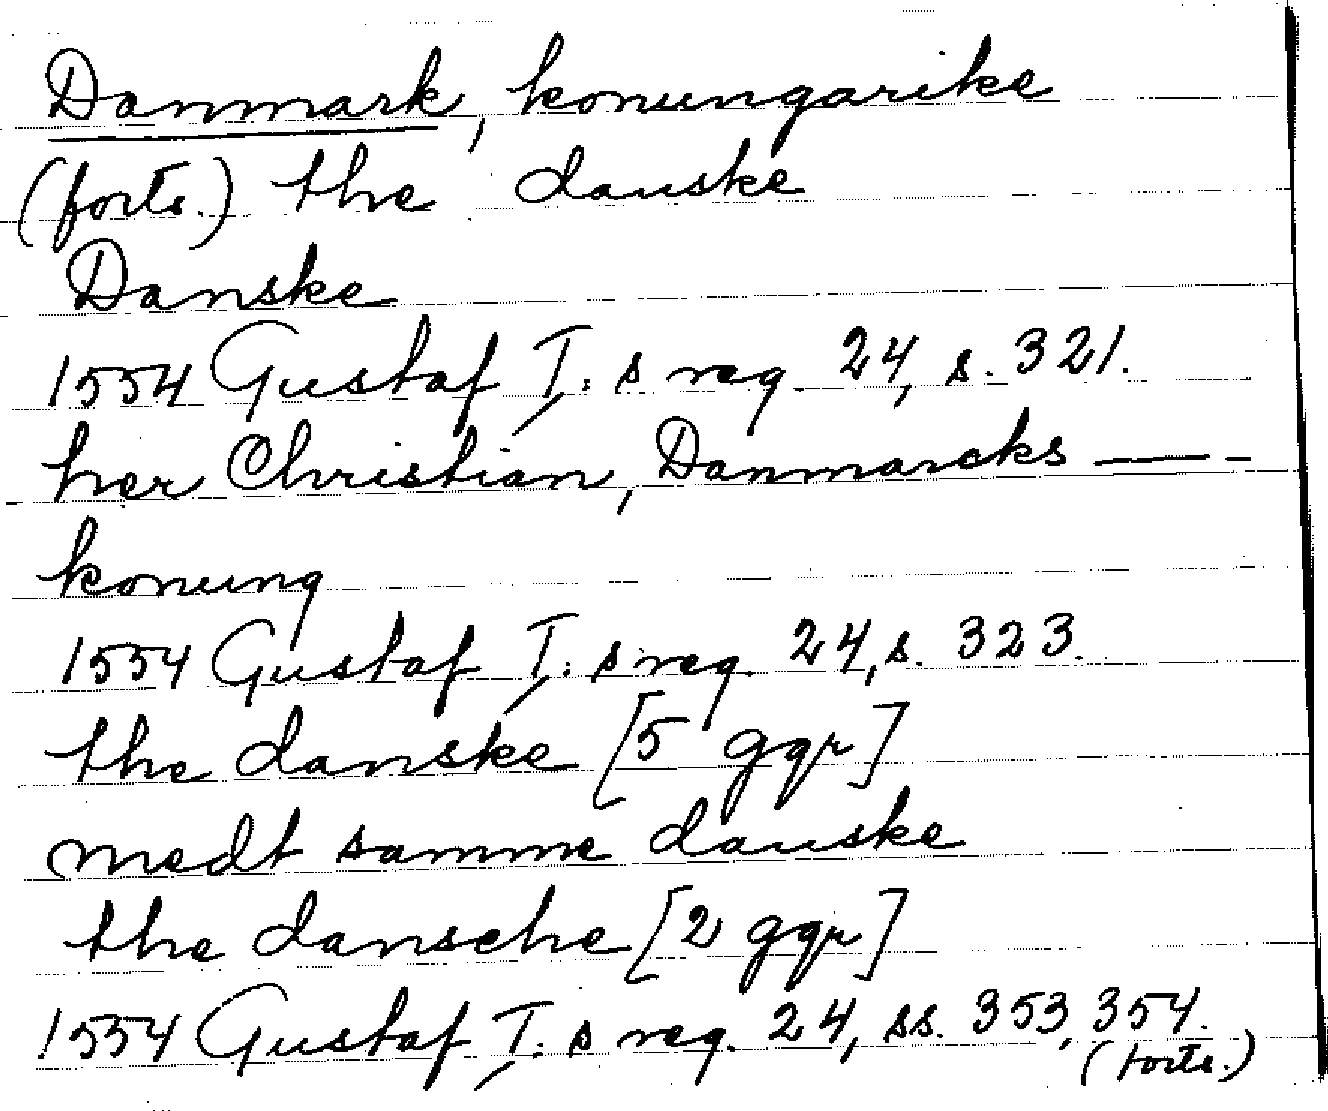 Danmark, konungarike
(forts.) the danske
Danske
1554 Gustaf I:s reg. 24, s. 321.
her Christian, Danmarcks —— -
konung
1554 Gustaf I:s reg. 24, s. 323.
the danske [5 ggr]
medt samme danske
the dansche [2 ggr]
1554 Gustaf I:s reg. 24, ss. 353, 354.
(forts.)